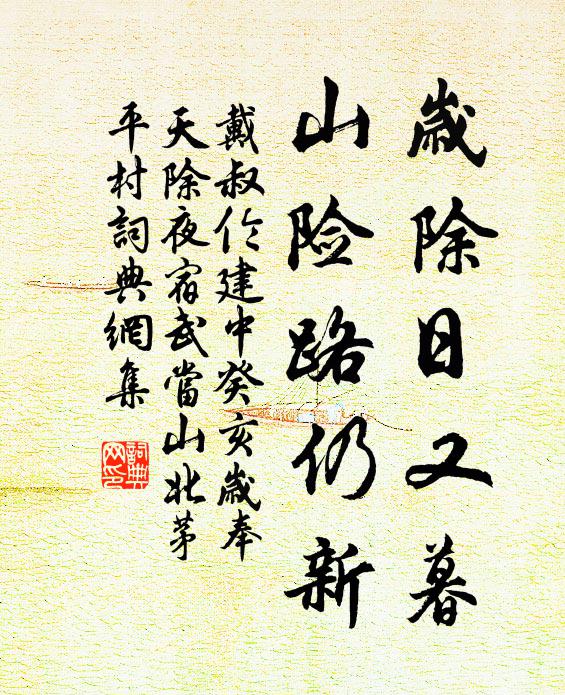 歲除日又暮
山险路仍新
戴叔伦建中癸亥歲奉
天除夜宿武當山北茅
平村詞典網集
詞典
网印